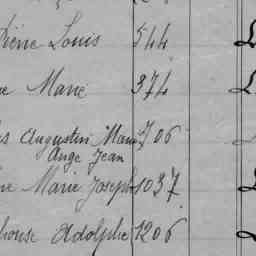 Louis 544
Marie 374
Augustin Marie 706
Ange Jean
Marie Joseph 1037
Adolphe 1206